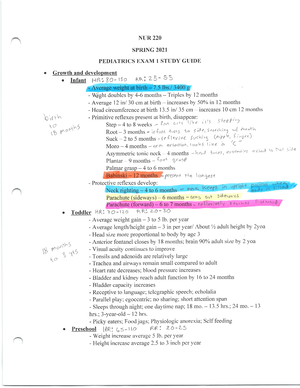 NUR 220
SPRING 2021
PEDIATRICS EXAM 1 STUDY GUIDE
• Growth and development
• Infant HR: 80-150 RR: 25-55
- Average weight at birth – 7.5 lbs / 3400 g
- Weight doubles by 4-6 months – Triples by 12 months
- Average 12 in/ 30 cm at birth – increases by 50% in 12 months
- Head circumference at birth 13.5 in/ 35 cm – increases 10 cm 12 months
- Primitive reflexes present at birth, disappear:
Step – 4 to 8 weeks –
birth to 18 months
Root – 3 months –
Suck – 2 to 5 months –
Moro – 4 months –
Asymmetric tonic neck – 4 months –
Plantar – 9 months – foot grasp
Palmar grasp – 4 to 6 months
Babinski – 12 months – present the longest
- Protective reflexes develop:
Neck righting – 4 to 6 months –
Parachute (sideways) – 6 months –
Parachute (forward) – 6 to 7 months –
• Toddler HR: 70-110 RR: 20-30
- Average weight gain – 3 to 5 lb. per year
- Average length/height gain – 3 in per year/ About ½ adult height by 2yoa
- Head size more proportional to body by age 3
- Anterior fontanel closes by 18 months; brain 90% adult size by 2 yoa
18 months to 3 yrs
- Visual acuity continues to improve
- Tonsils and adenoids are relatively large
- Trachea and airways remain small compared to adult
- Heart rate decreases; blood pressure increases
- Bladder and kidney reach adult function by 16 to 24 months
- Bladder capacity increases
- Receptive to language; telegraphic speech; echolalia
- Parallel play; egocentric; no sharing; short attention span
- Sleeps through night; one daytime nap; 18 mo. – 13.5 hrs.; 24 mo. – 13
hrs.; 3-year-old – 12 hrs.
- Picky eaters; Food jags; Physiologic anorexia; Self feeding
• Preschool HR: 65-110 RR: 20-25
- Weight increase average 5 lb. per year
- Height increase average 2.5 to 3 inch per year